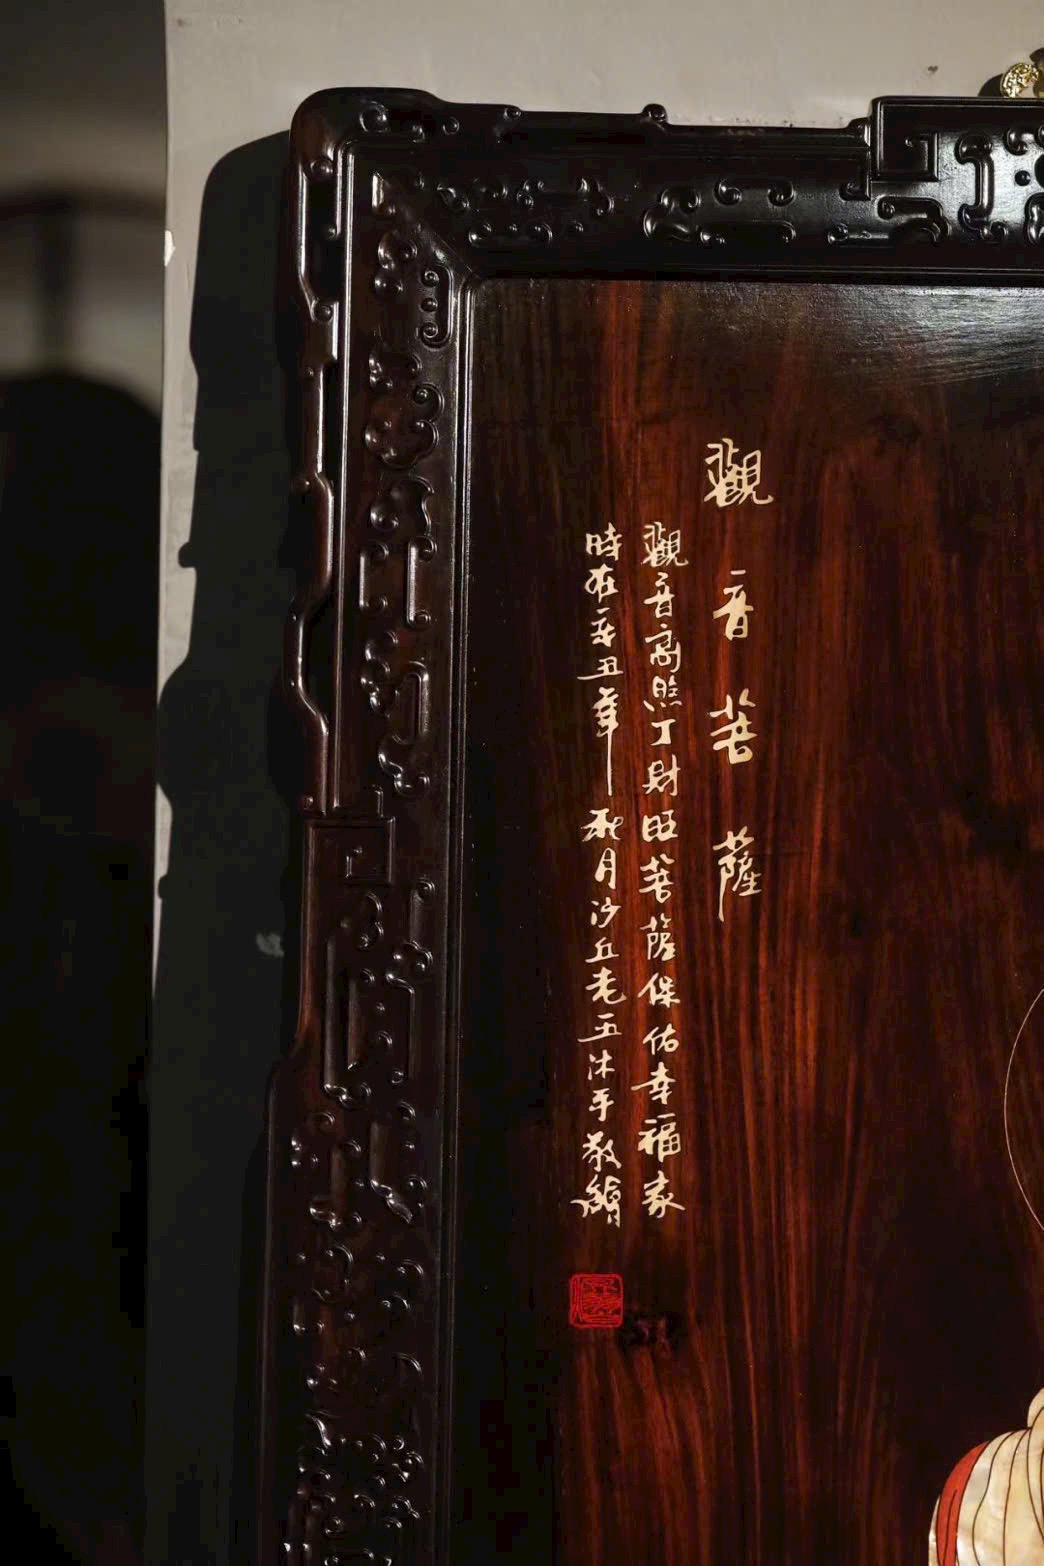 觀音菩薩
觀音高照丁財旺菩薩保佑幸福家
時在辛丑年秋月沙丘老五沐手敬繪